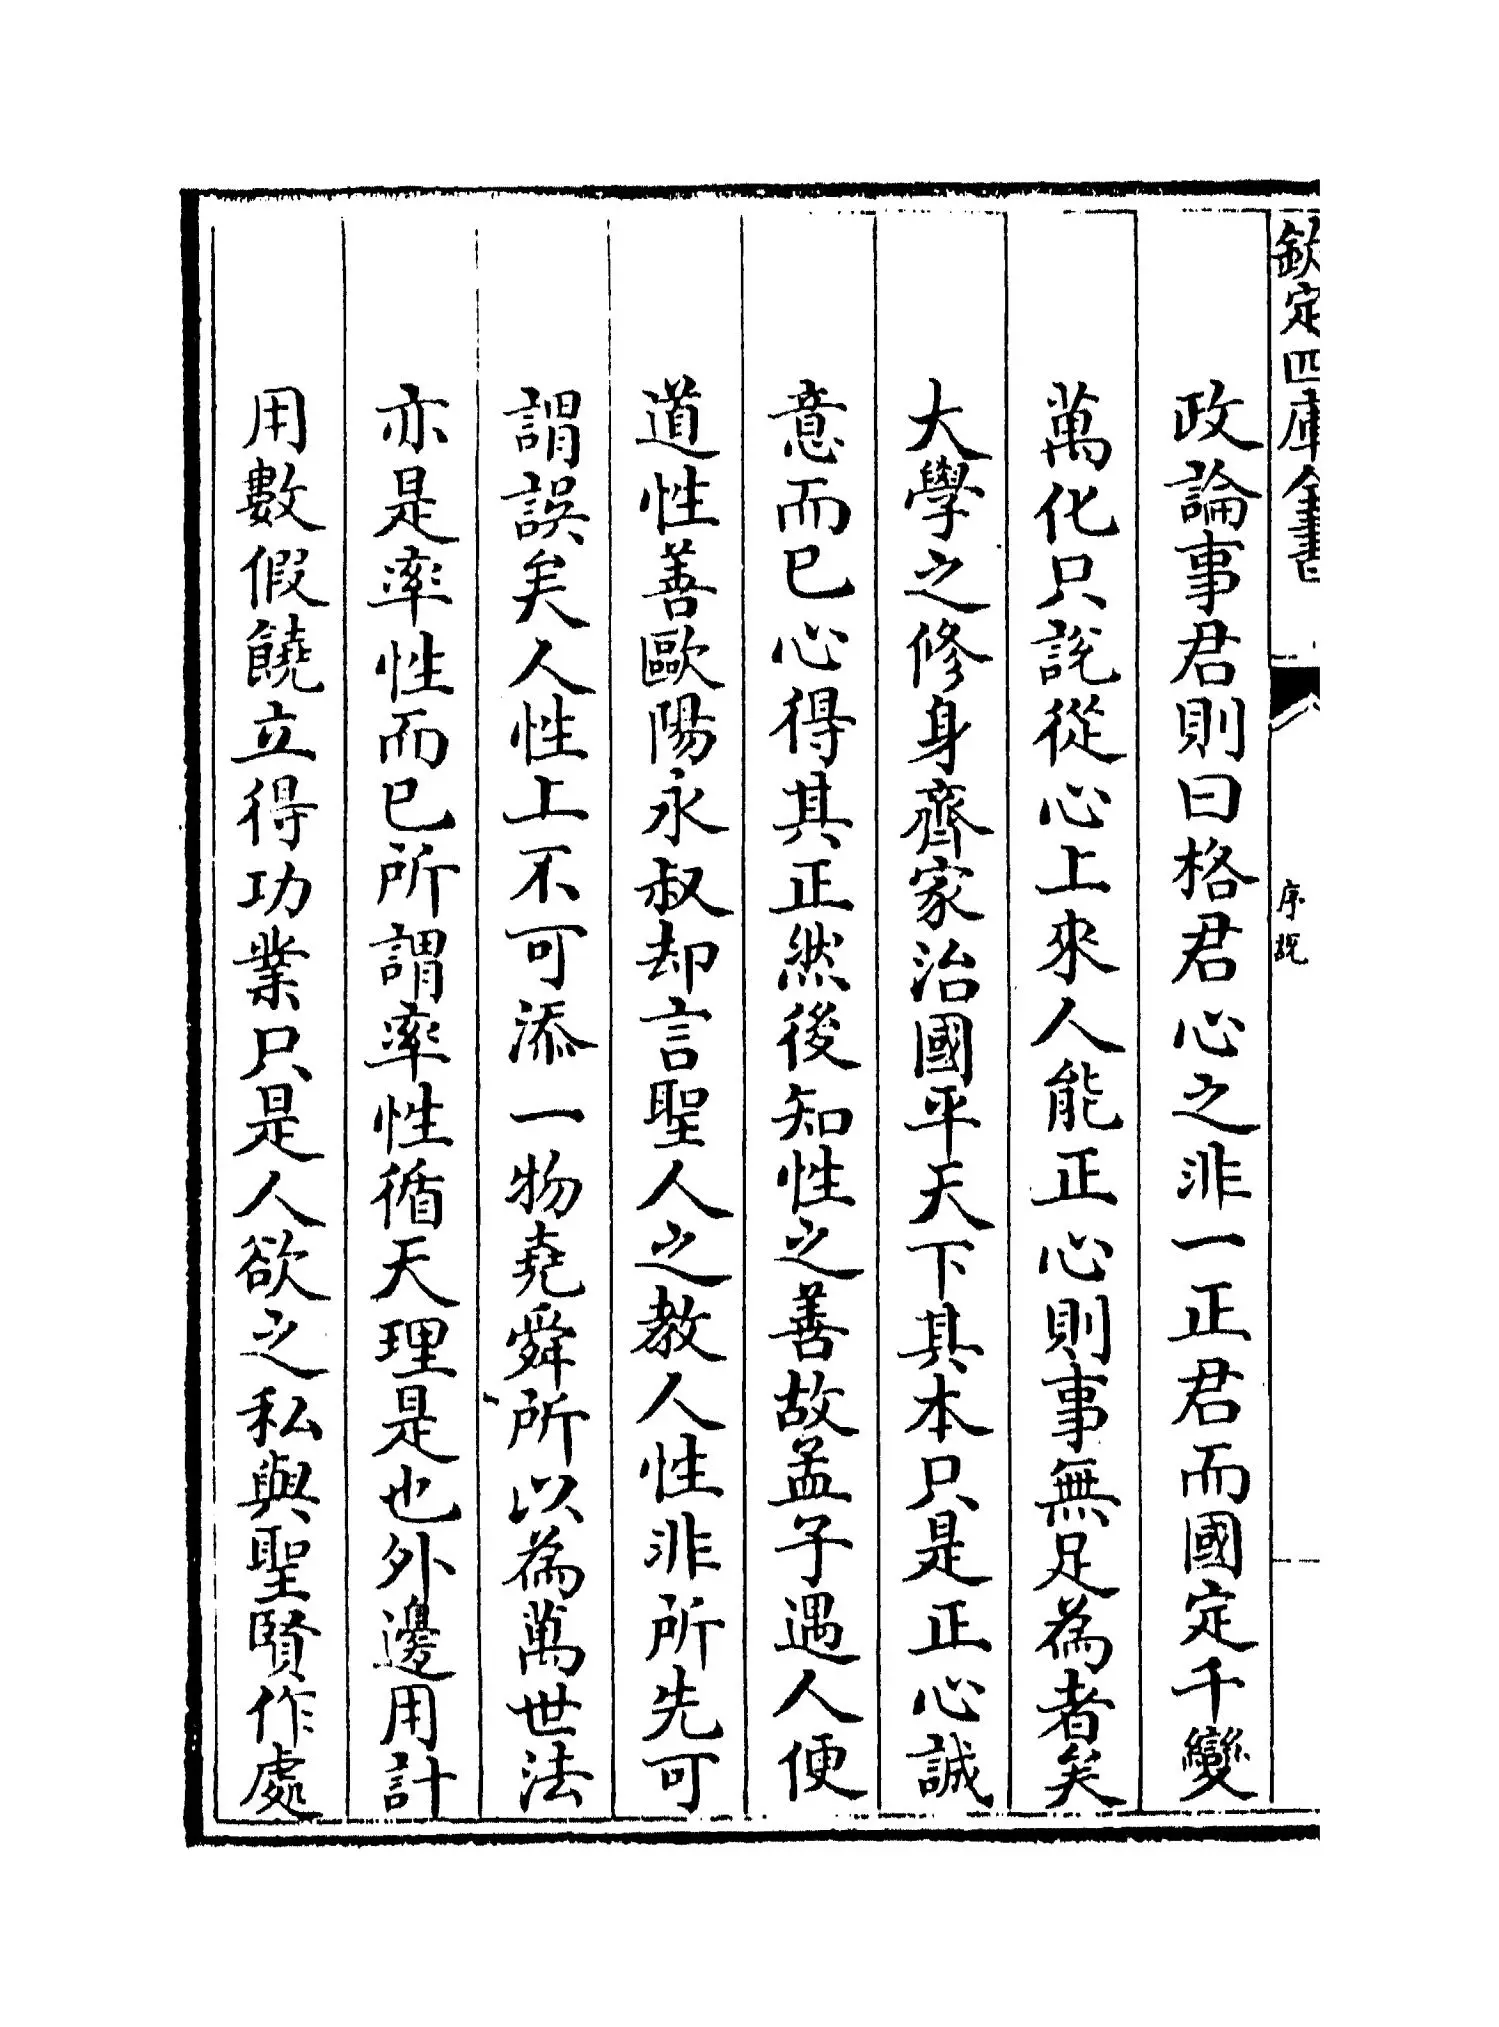 欽定四庫全書
序說
政論事君則曰格君心之非一正君而國定千變
萬化只說從心上來人能正心則事無足為者矣
大學之修身齊家治國平天下其本只是正心誠
意而已心得其正然後知性之善故孟子遇人便
道性善歐陽永叔却言聖人之教人性非所先可
謂誤矣人性上不可添一物堯舜所以為萬世法
亦是率性而已所謂率性循天理是也外邊用計
用數假饒立得功業只是人欲之私與聖賢作處